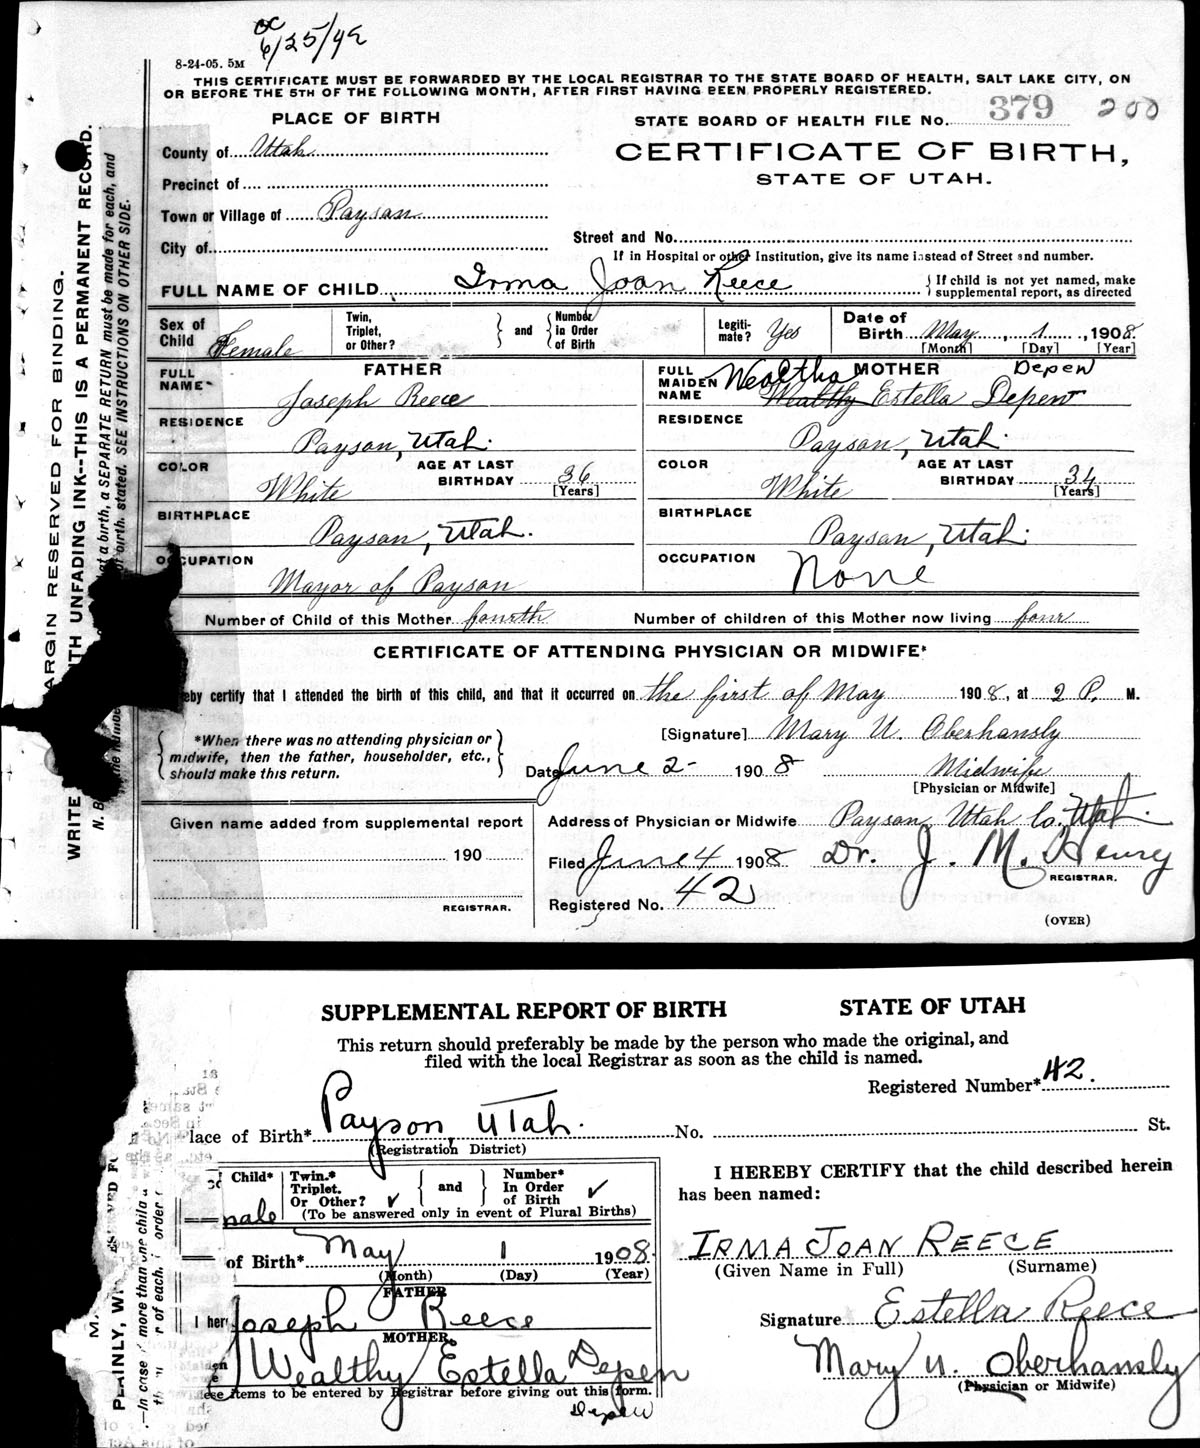 OC
6/25/42
8-24-05. 5M
THIS CERTIFICATE MUST BE FORWARDED BY THE LOCAL REGISTRAR TO THE STATE BOARD OF HEALTH, SALT LAKE CITY, ON
OR BEFORE THE 5TH OF THE FOLLOWING MONTH, AFTER FIRST HAVING BEEN PROPERLY REGISTERED.
PLACE OF BIRTH
STATE BOARD OF HEALTH FILE No. 379 200
County of Utah
CERTIFICATE OF BIRTH,
STATE OF UTAH.
Precinct of
Town or Village of Payson
City of
Street and No.
If in Hospital or other Institution, give its name instead of Street and number.
FULL NAME OF CHILD Irma Joan Reece { If child is not yet named, make
supplemental report, as directed
Sex of Child Female
Twin, Triplet, or Other? } and { Number in Order of Birth
Legiti-mate? Yes
Date of Birth May, 1, 1908
[Month] [Day] [Year]
FATHER
FULL NAME Joseph Reece
RESIDENCE Payson, Utah.
COLOR White
AGE AT LAST BIRTHDAY 36 [Years]
BIRTHPLACE Payson, Utah.
OCCUPATION Mayor of Payson
MOTHER
FULL MAIDEN NAME Wealtha Wealthy Estella Depew
Depew
RESIDENCE Payson, Utah.
COLOR White
AGE AT LAST BIRTHDAY 34 [Years]
BIRTHPLACE Payson, Utah.
OCCUPATION None
Number of Child of this Mother fourth Number of children of this Mother now living four
CERTIFICATE OF ATTENDING PHYSICIAN OR MIDWIFE*
eby certify that I attended the birth of this child, and that it occurred on the first of May 1908, at 2 P. M.
{ *When there was no attending physician or
midwife, then the father, householder, etc.,
should make this return. }
[Signature] Mary U. Oberhansly
Date June 2- 1908 Midwife
[Physician or Midwife]
Given name added from supplemental report
190
REGISTRAR.
Address of Physician or Midwife Payson, Utah Co. Utah.
Filed June 4 1908 Dr. J. M. Henry
REGISTRAR.
Registered No. 42
(OVER)
ARGIN RESERVED FOR BINDING.
WRITE TH UNFADING INK--THIS IS A PERMANENT RECORD.
N. B. at a birth, a SEPARATE RETURN must be made for each, and
the number of birth, stated. SEE INSTRUCTIONS ON OTHER SIDE.
SUPPLEMENTAL REPORT OF BIRTH STATE OF UTAH
This return should preferably be made by the person who made the original, and
filed with the local Registrar as soon as the child is named.
Registered Number* 42.
Place of Birth* Payson, Utah. No. St.
(Registration District)
Child* nale
Twin.* Triplet. Or Other? ✓ { and } Number* In Order of Birth ✓
(To be answered only in event of Plural Births)
of Birth* May 1 1908
(Month) (Day) (Year)
FATHER
I her Joseph Reece
MOTHER
Wealthy Estella Depen
ese items to be entered by Registrar before giving out this form.
Depew
I HEREBY CERTIFY that the child described herein
has been named:
IRMA JOAN REECE
(Given Name in Full) (Surname)
Signature Estella Reece
Mary U. Oberhansly
(Physician or Midwife)
PLAINLY, W
—In case of more than one child a
r of each, order